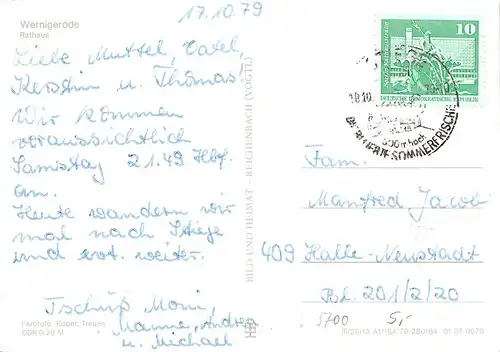 Wernigerode
Rathaus
17.10.79
Liebe Muttel, Vatel,
Kerstin u. Thomas!
Wir kommen
voraussichtlich
Samstag 21.49 Hbf.
an.
Heute wandern wir
mal nach Stiege
und evt. weiter.
Tschüß Moni,
Manne, Andrea
u. Michael
Farbfoto: Kober, Treuen
DDR 0,20 M
BILD UND HEIMAT REICHENBACH (VOGTL)
10
DEUTSCHE DEMOKRATISCHE REPUBLIK
18.10.
500 m hoch
SOMMERFRISCHE
Fam.
Manfred Jacob
409 Halle-Neustadt
Bl. 201/2/20
5700 5,-
01 01 0070